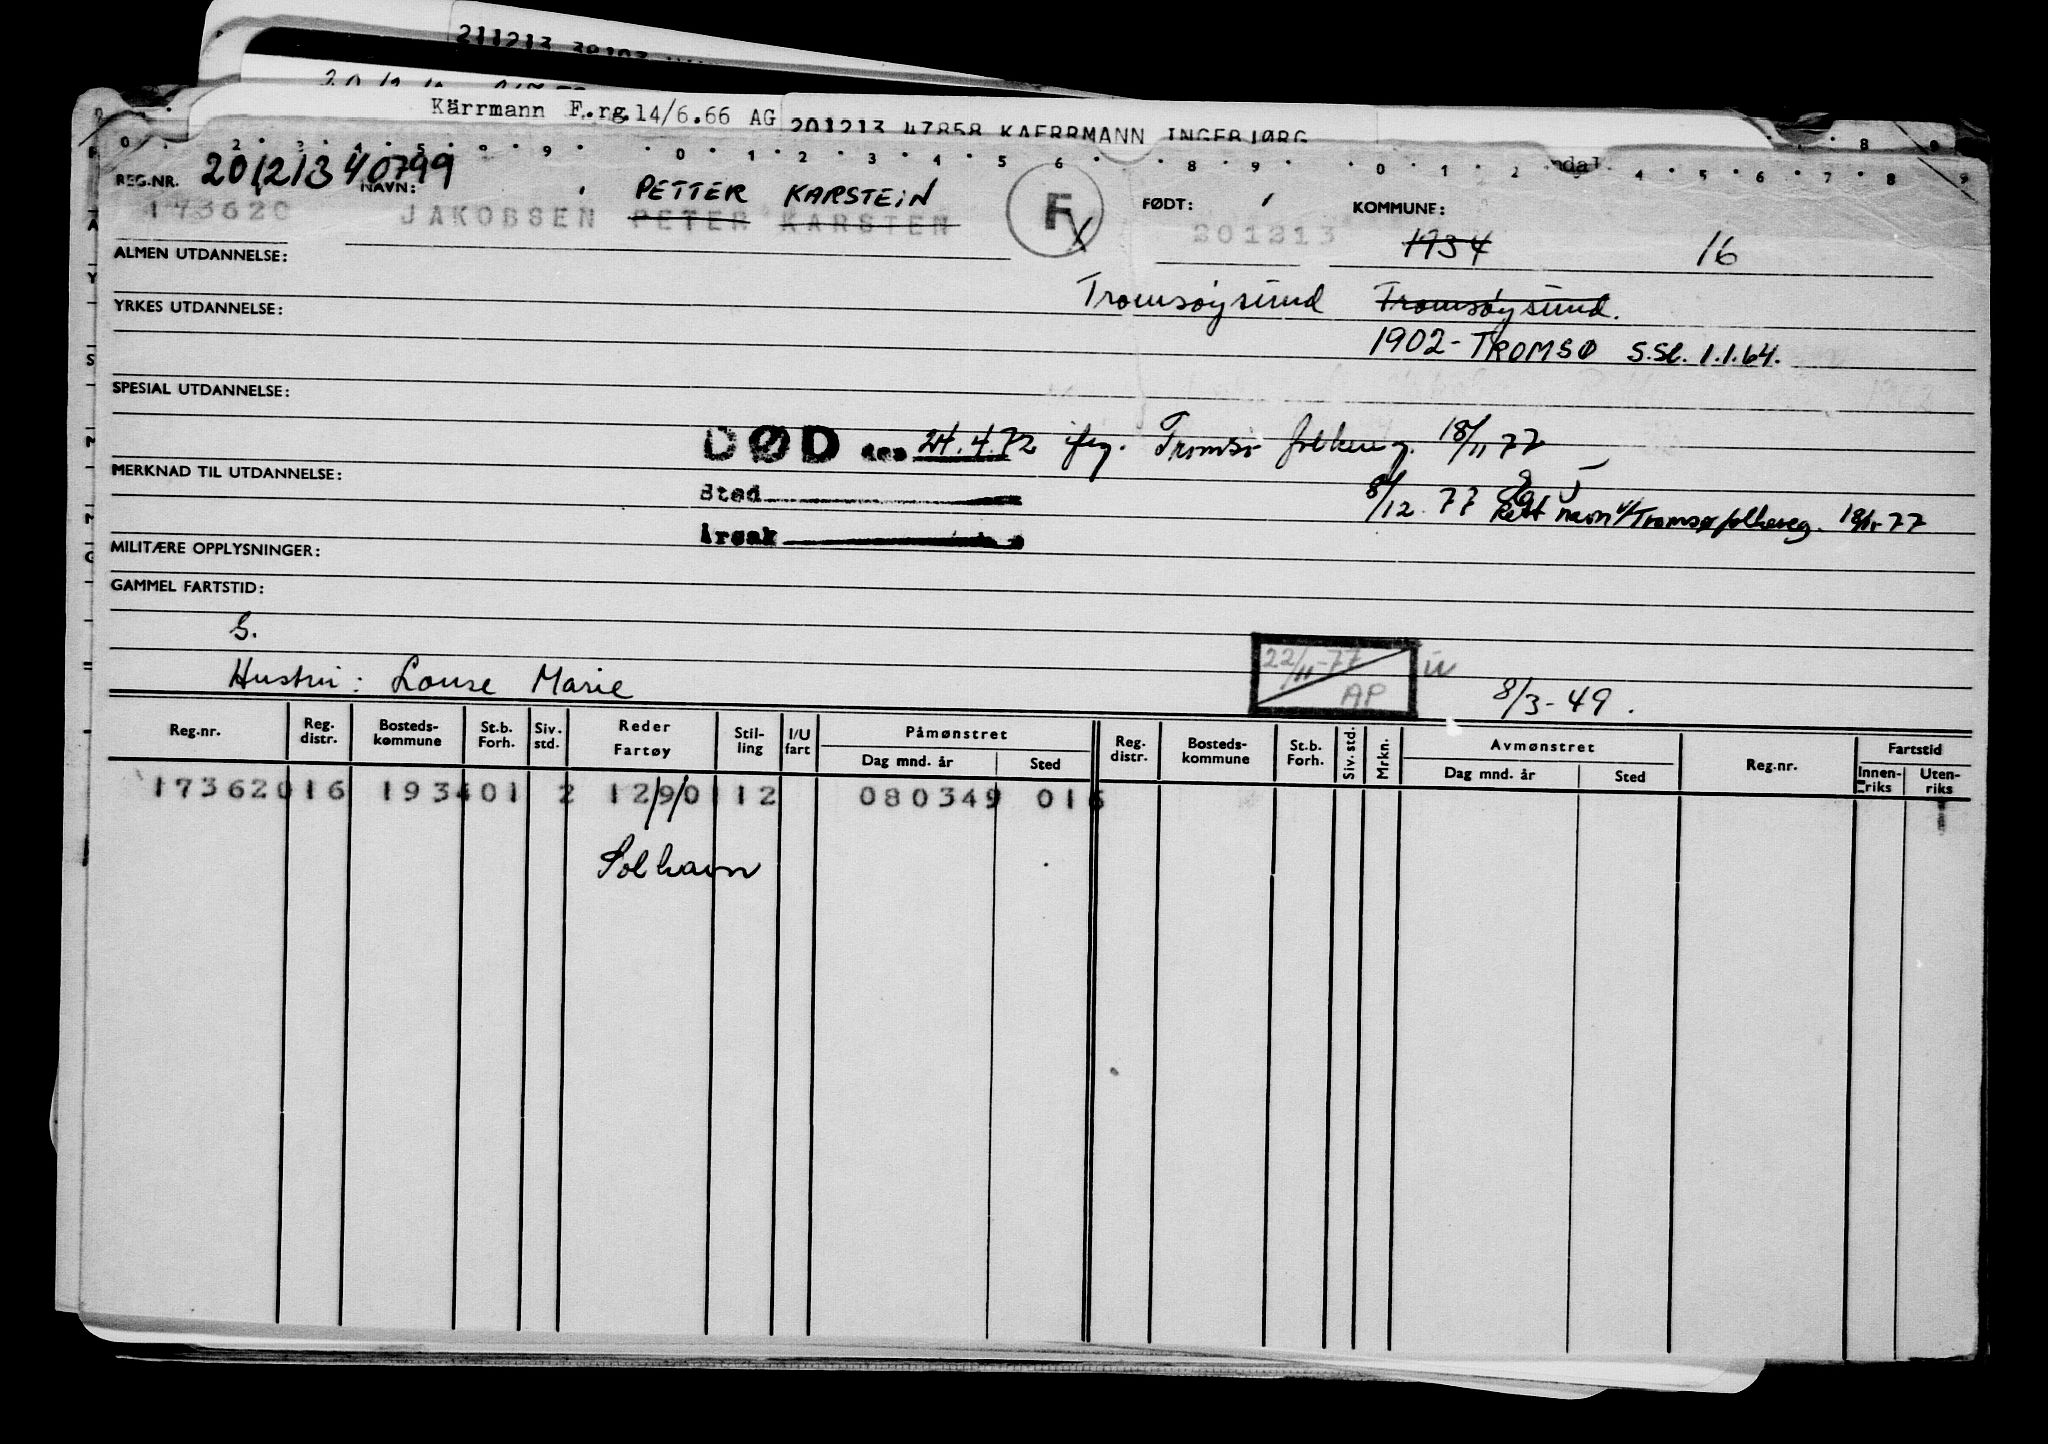 211213
Kärrmann F.rg.14/6.66 AG
201213 47858 KAERRMANN INGEBJØRG
REG.NR. 201213 40799 NAVN: PETTER KARSTEIN F FØDT: KOMMUNE:
173620 JAKOBSEN PETER KARSTEN 201213 1934 16
ALMEN UTDANNELSE:
Tromsøysund Tromsøysund.
YRKES UTDANNELSE:
1902- TROMSØ S.Sl. 1.1.64.
SPESIAL UTDANNELSE:
DØD den 24.4.72 ifg. Tromsø folkereg. 18/11 77
MERKNAD TIL UTDANNELSE:
Sted 8/12 77
Rett navn Tromsø folkereg. 18/11-77
Årsak
MILITÆRE OPPLYSNINGER:
GAMMEL FARTSTID:
S.
22/11-77
AP
Hustru: Louse Marie 8/3-49.
Reg.nr. Reg. distr. Bosteds- kommune St.b. Forh. Siv. std. Reder Fartøy Stil- ling I/U fart Påmønstret Dag mnd. år Sted Reg. distr. Bosteds- kommune St.b. Forh. Siv. std. Mrkn. Avmønstret Dag mnd. år Sted Reg.nr. Fartstid Innen- riks Uten- riks
173620 16 1934 01 2 12/9/0 12 080349 016
Solhavn